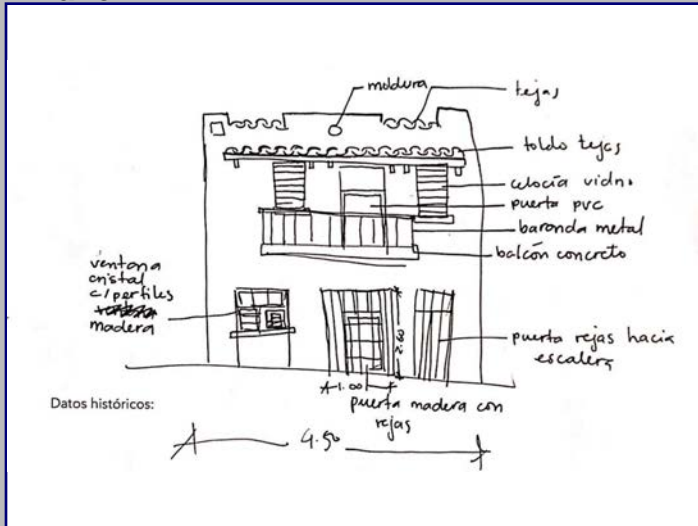 moldura
tejas
toldo tejas
celocía vidrio
puerta pvc
baranda metal
balcón concreto
ventana
cristal
c/perfiles
madera
puerta rejas hacia
escalera
2.60
1.00
puerta madera con
rejas
Datos históricos:
9.50